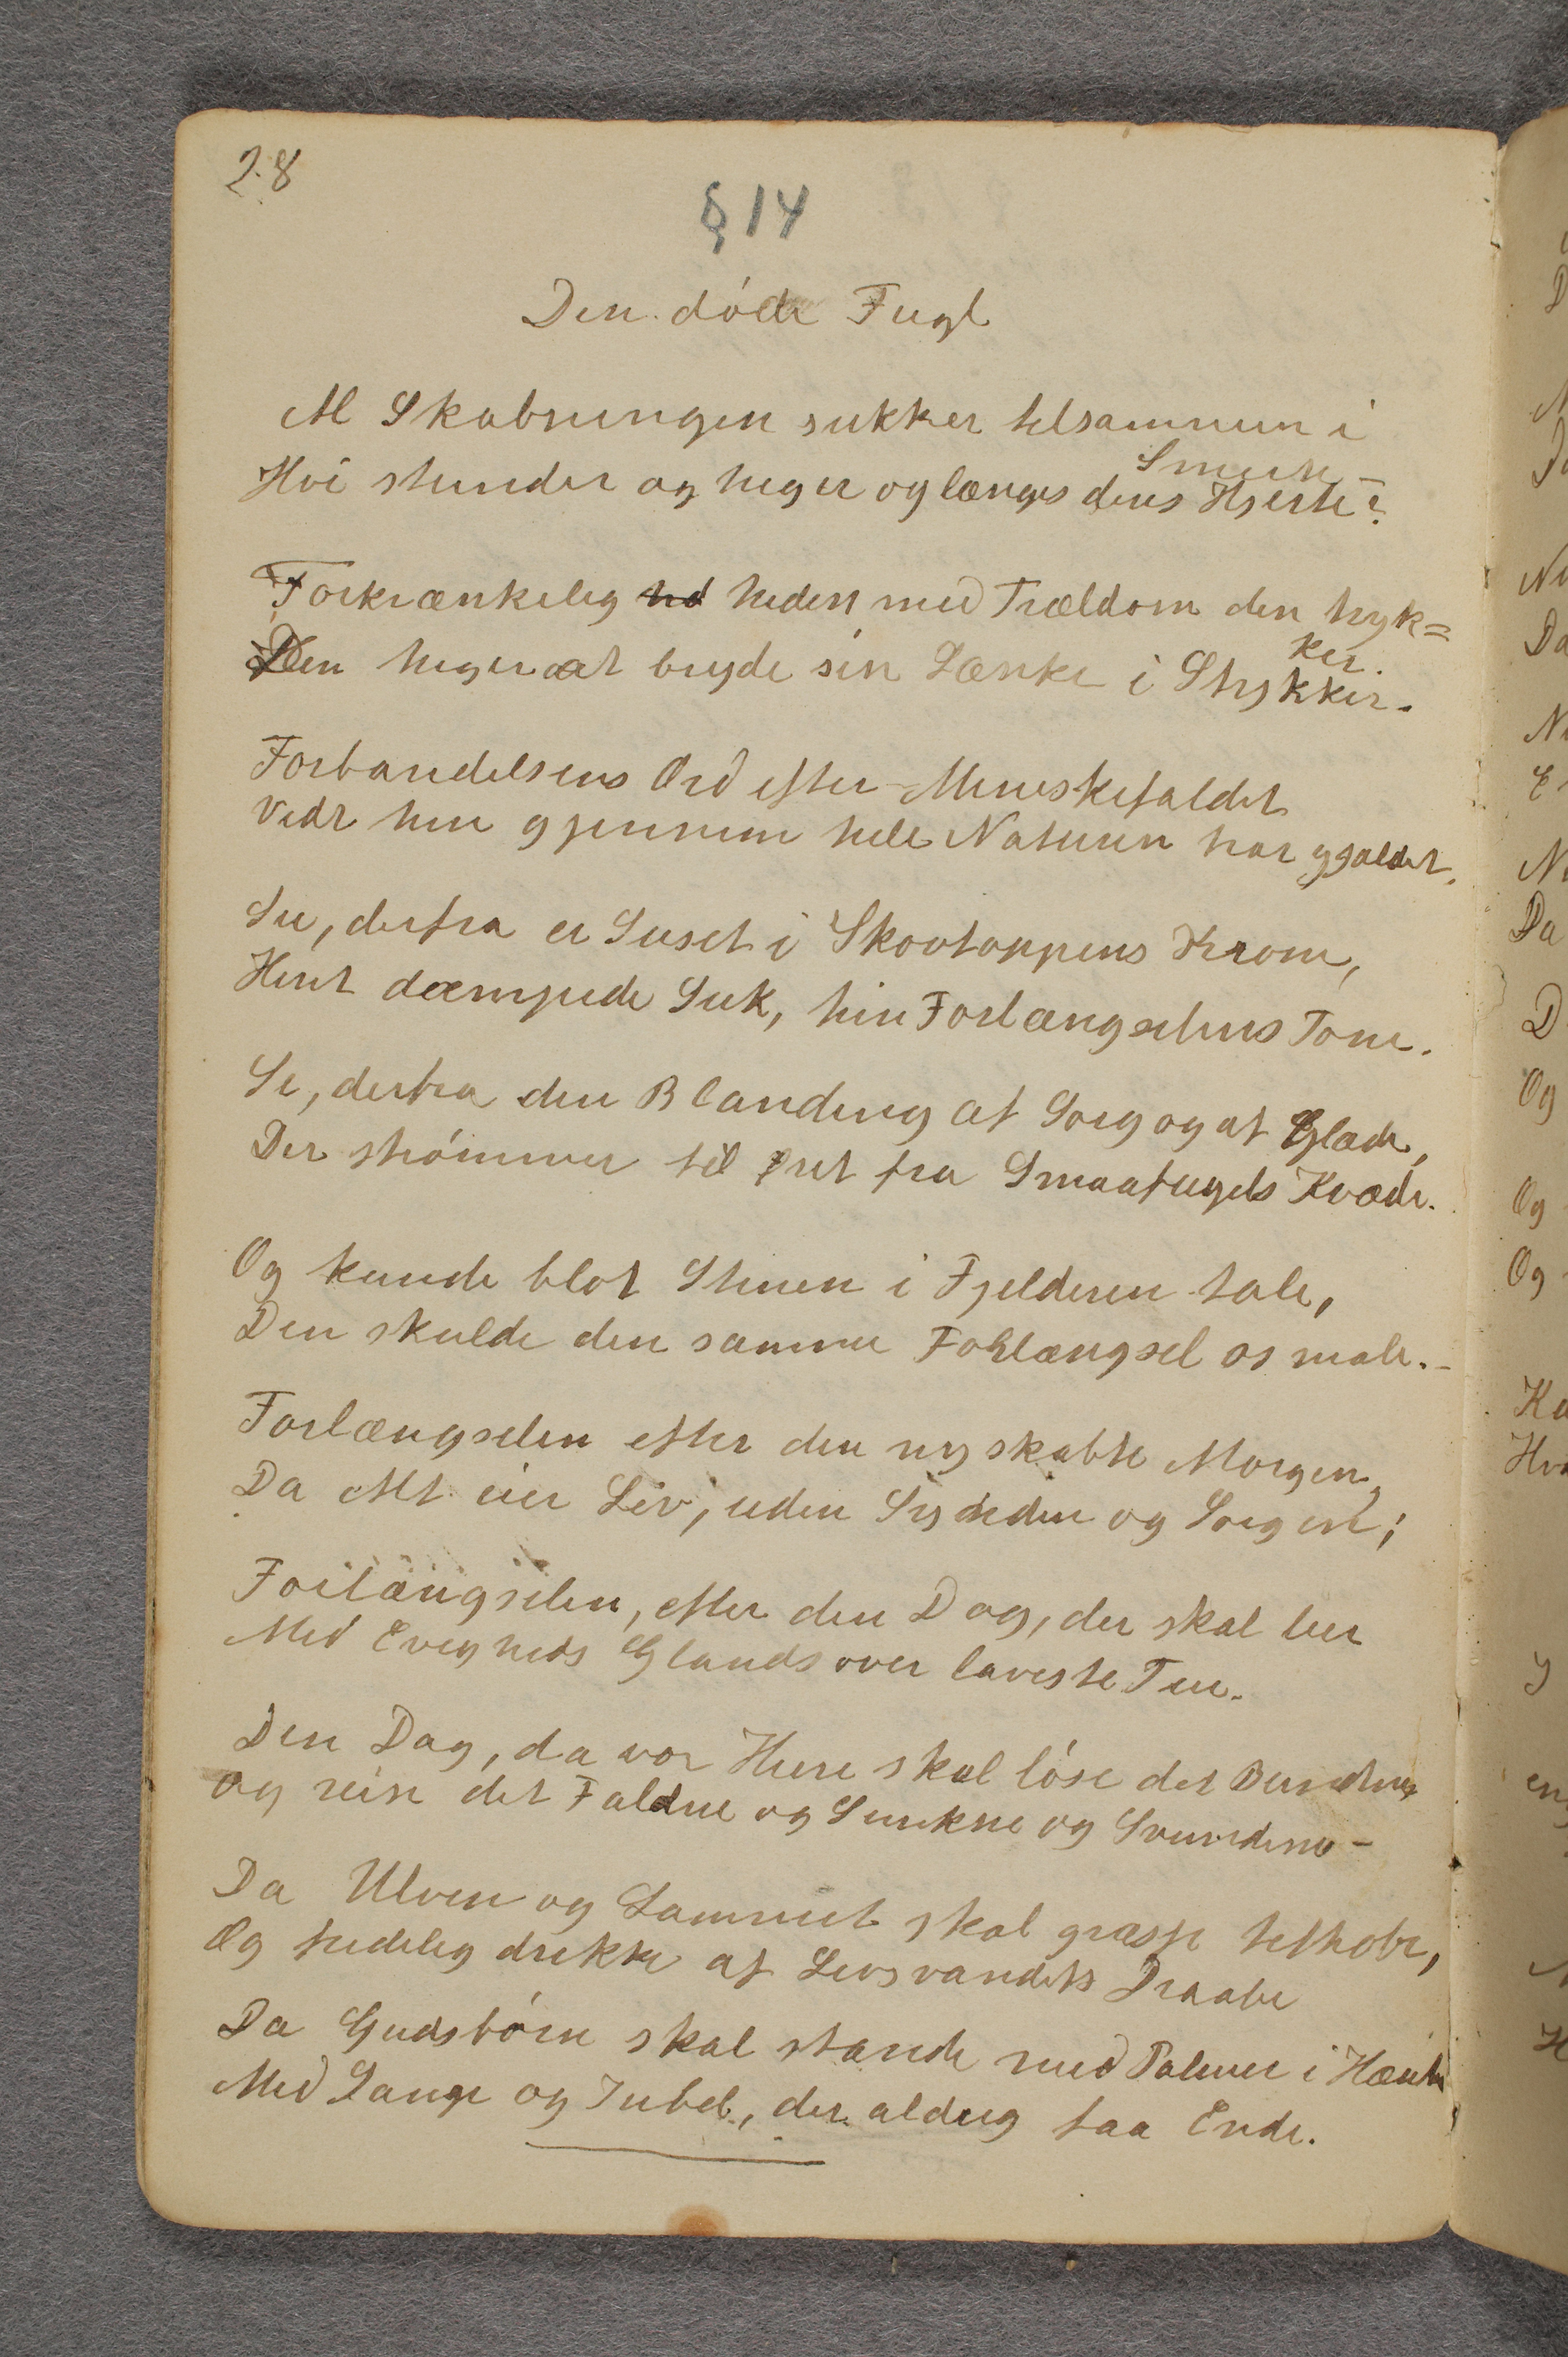 28
§ 14
Den døde Fugl
Al Skabningen sukker tilsammen i
Smerte –
Hvi stunder og higer og længes dens Hjerte?
Forkrænkelig hd heden med Trældom den tryk=
ker.
Den higer at bryde sin Lænke i Stykker.
Forbandelsens Ord efter Menneskefaldet
Vidt hen gjennem hele Naturen har gjaldet.
Se, derfra er Suset i Skovtoppens Krone,
Hint dæmpede Suk, hin Forlængselens Tone.
Se, derfra den Blanding af Sorg og af Glæde,
Der strømmer til Øret fra Smaafugels Kvæde.
Og kunde blot Stenen i Fjelderen tale,
Den skulde den samme Forlængsel os male. –
Forlængselen efter den nyskabte Morgen,
Da Alt eier Liv, uden Synden og Sorgen;
Forlængselen, efter den Dag, der skal leer
Med Evigheds Glands over laveste Tue.
Den Dag, da vor Herre skal løse det Bundne
Og reise det Faldne og Sunkne og Svundene –
Da Ulven og Lammet skal græsse tilhobe,
Og fredelig drikke af Livsvandets Draabe
Da Gudsbørn skal stande med Palmer i Hænde
Med Sange og Jubel, der aldrig faa Ende.